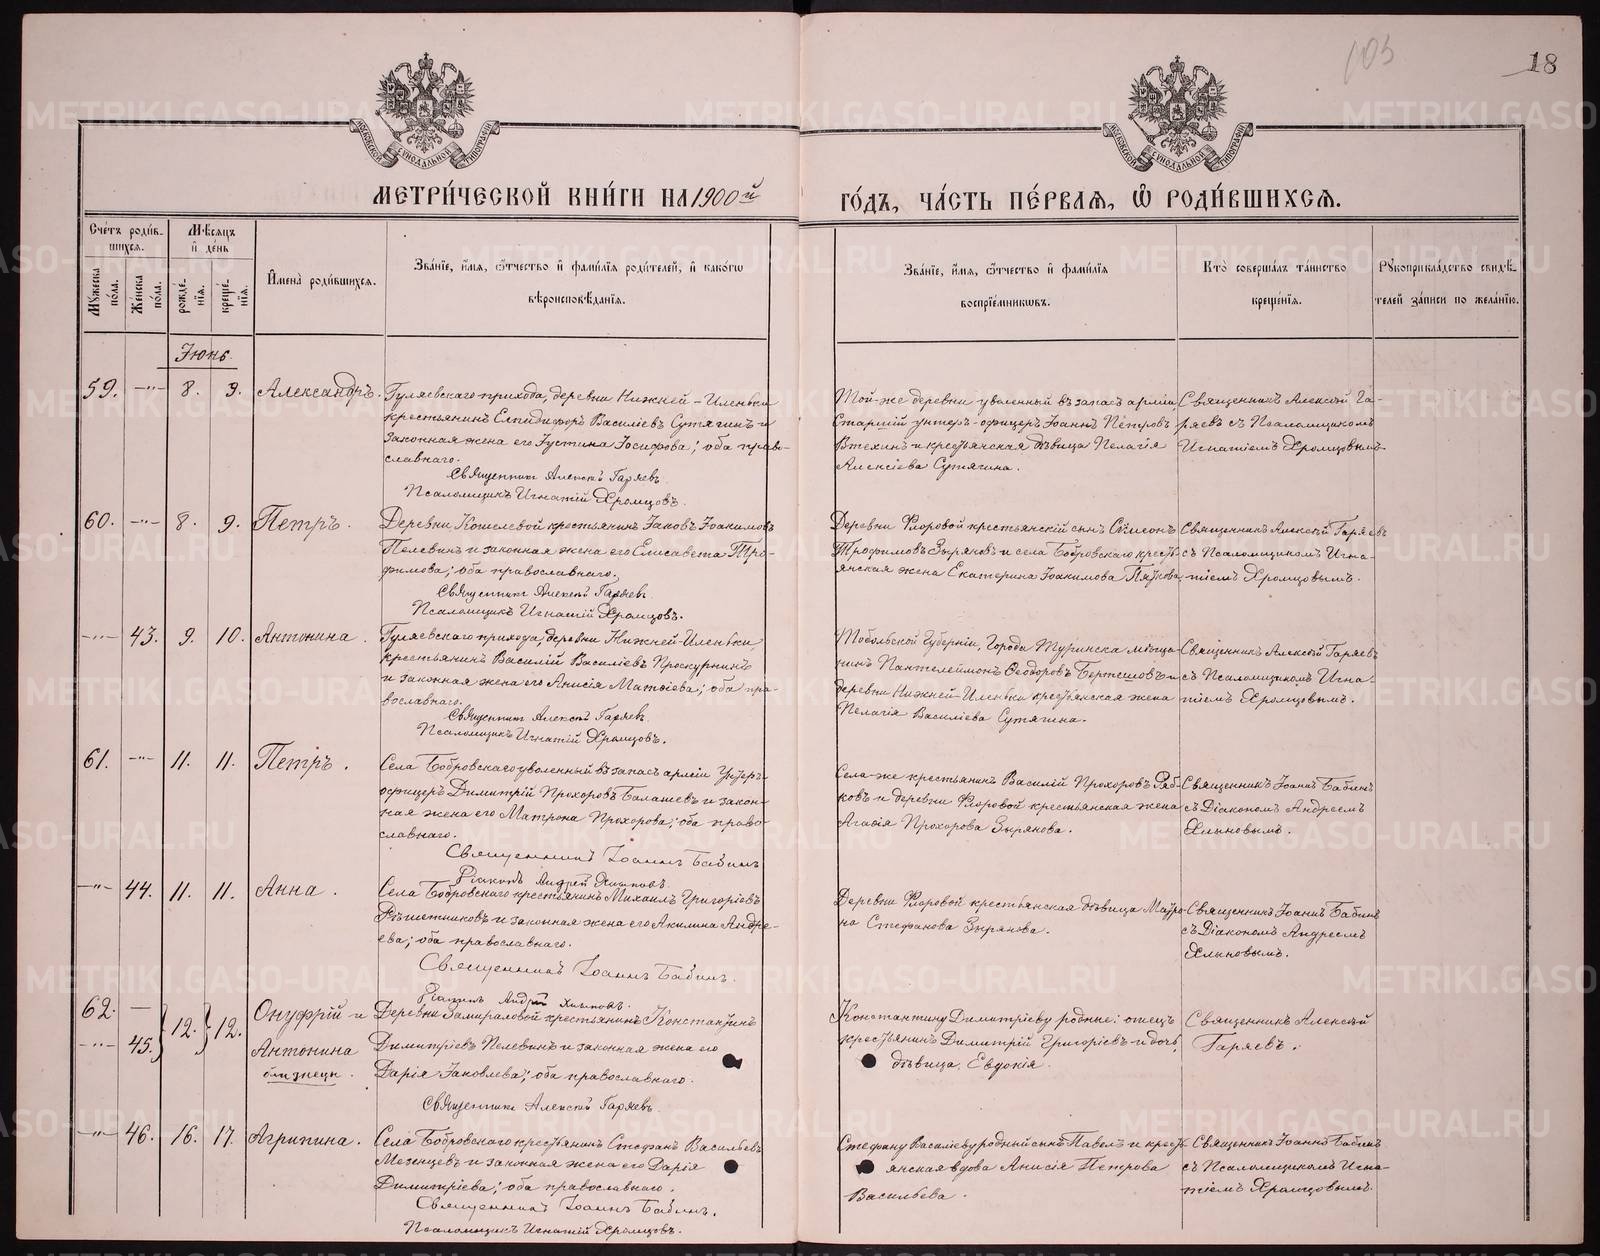 103
18
МОСКОВСКОЙ СѴНОДАЛЬНОЙ ТИПОГРАФІИ
МОСКОВСКОЙ СѴНОДАЛЬНОЙ ТИПОГРАФІИ
МЕТРИ́ЧЕСКОЙ КНИ́ГИ НА 1900й
ГО́ДЪ, ЧА́СТЬ ПЕ́РВАѦ, Ѽ РОДИ́ВШИХСѦ.
Сче́тъ роди́в-
шихсѧ.
Мꙋжеска по́ла.
Женска по́ла.
Мѣ́сѧцъ
и҆ де́нь
рожде́нїѧ.
креще́нїѧ.
И҆мена̀ роди́вшихсѧ.
Зва́нїе, и҆́мѧ, ѻ҆́тчество и҆ фами́лїѧ роди́телей, и҆ како́гѡ
вѣроисповѣ́данїѧ.
Зва́нїе, и҆́мѧ, ѻ҆́тчество и҆ фами́лїѧ
воспрїе́мникѡвъ.
Кто̀ соверша́лъ та́инство
креще́нїѧ.
Рꙋкоприкла́дство свидѣ́-
телей за́писи по жела́нїю.
Іюнь.
59. -"- 8. 9. Александръ.
Гуляевскаго прихода, деревни Нижней-Иленьки
крестьянинъ Елпидифоръ Василіевъ Сутягинъ и
законная жена его Іустина Іосифова; оба право-
славнаго.
Священникъ Алексѣй Гаряевъ
Псаломщикъ Игнатій Хромцовъ.
Той-же деревни уволенный въ запасъ арміи
Старшій унтеръ-офицеръ Іоаннъ Петровъ
Втехинъ и крестьянская дѣвица Пелагія
Алексіева Сутягина.
Священникъ Алексѣй Га-
ряевъ съ Псаломщикомъ
Игнатіемъ Хромцовымъ
60. -"- 8. 9. Петръ.
Деревни Кошелевой крестьянинъ Іаковъ Іоакимовъ
Пелевинъ и законная жена его Елисавета Тро-
фимова; оба православнаго.
Священникъ Алексѣй Гаряевъ
Псаломщикъ Игнатій Хромцовъ.
Деревни Флоровой крестьянскій сынъ Симеонъ
Трофимовъ Зыряновъ и села Бобровскаго кресть-
янская жена Екатерина Іоакимова
Священникъ Алексѣй Гаряевъ
съ Псаломщикомъ Игна-
тіемъ Хромцовымъ.
-"- 43. 9. 10. Антонина.
Гуляевскаго прихода, деревни Нижней-Иленьки
крестьянинъ Василій Василіевъ Проскурнинъ
и законная жена его Анисія Матѳіева; оба пра-
вославнаго.
Священникъ Алексѣй Гаряевъ.
Псаломщикъ Игнатій Хромцовъ.
Тобольской Губерніи, Города Туринска мѣща-
нинъ Пантелеймонъ Ѳеодоровъ и
деревни Нижней-Иленьки крестьянская жена
Пелагія Василіева Сутягина.
Священникъ Алексѣй Гаряевъ
съ Псаломщикомъ Игна-
тіемъ Хромцовымъ.
61. -"- 11. 11. Петръ.
Села Бобровскаго уволенный въ запасъ арміи Унтеръ-
офицеръ Димитрій Прохоровъ Балашевъ и закон-
ная жена его Матрона Прохорова; оба право-
славнаго.
Священникъ Іоаннъ Бабинъ
Діаконъ Андрей Хлыновъ.
Села-же крестьянинъ Василій Прохоровъ Ряб-
ковъ и деревни Флоровой крестьянская жена
Агаѳія Прохорова Зырянова.
Священникъ Іоаннъ Бабинъ
съ Діакономъ Андреемъ
Хлыновымъ.
-"- 44. 11. 11. Анна.
Села Бобровскаго крестьянинъ Михаилъ Григоріевъ
Рѣшетниковъ и законная жена его Акилина Андре-
ева; оба православнаго.
Священникъ Іоаннъ Бабинъ.
Діаконъ Андрей Хлыновъ.
Деревни Флоровой крестьянская дѣвица Мавро-
на Стефанова Зырянова.
Священникъ Іоаннъ Бабинъ
съ Діакономъ Андреемъ
Хлыновымъ.
62. — 12. 12. Онуфрій и
-"- 45. Антонина
близнецы.
Деревни Замираловой крестьянинъ Константинъ
Димитріевъ Пелевинъ и законная жена его
Дарія Іаковлева; оба православнаго.
Священникъ Алексѣй Гаряевъ.
Константину Димитріеву родные: отецъ
крестьянинъ Димитрій Григоріевъ и дочь,
дѣвица, Евдокія.
Священникъ Алексѣй
Гаряевъ.
-"- 46. 16. 17. Агрипина.
Села Бобровскаго крестьянинъ Стефанъ Васильевъ
Мезенцевъ и законная жена его Дарія
Димитріева; оба православнаго.
Священникъ Іоаннъ Бабинъ.
Псаломщикъ Игнатій Хромцовъ.
Стефану Василіеву родный сынъ Павелъ и кресть-
янская вдова Анисія Петрова
Васильева.
Священникъ Іоаннъ Бабинъ
съ Псаломщикомъ Игна-
тіемъ Хромцовымъ.
METRIKI.GASO-URAL.RU